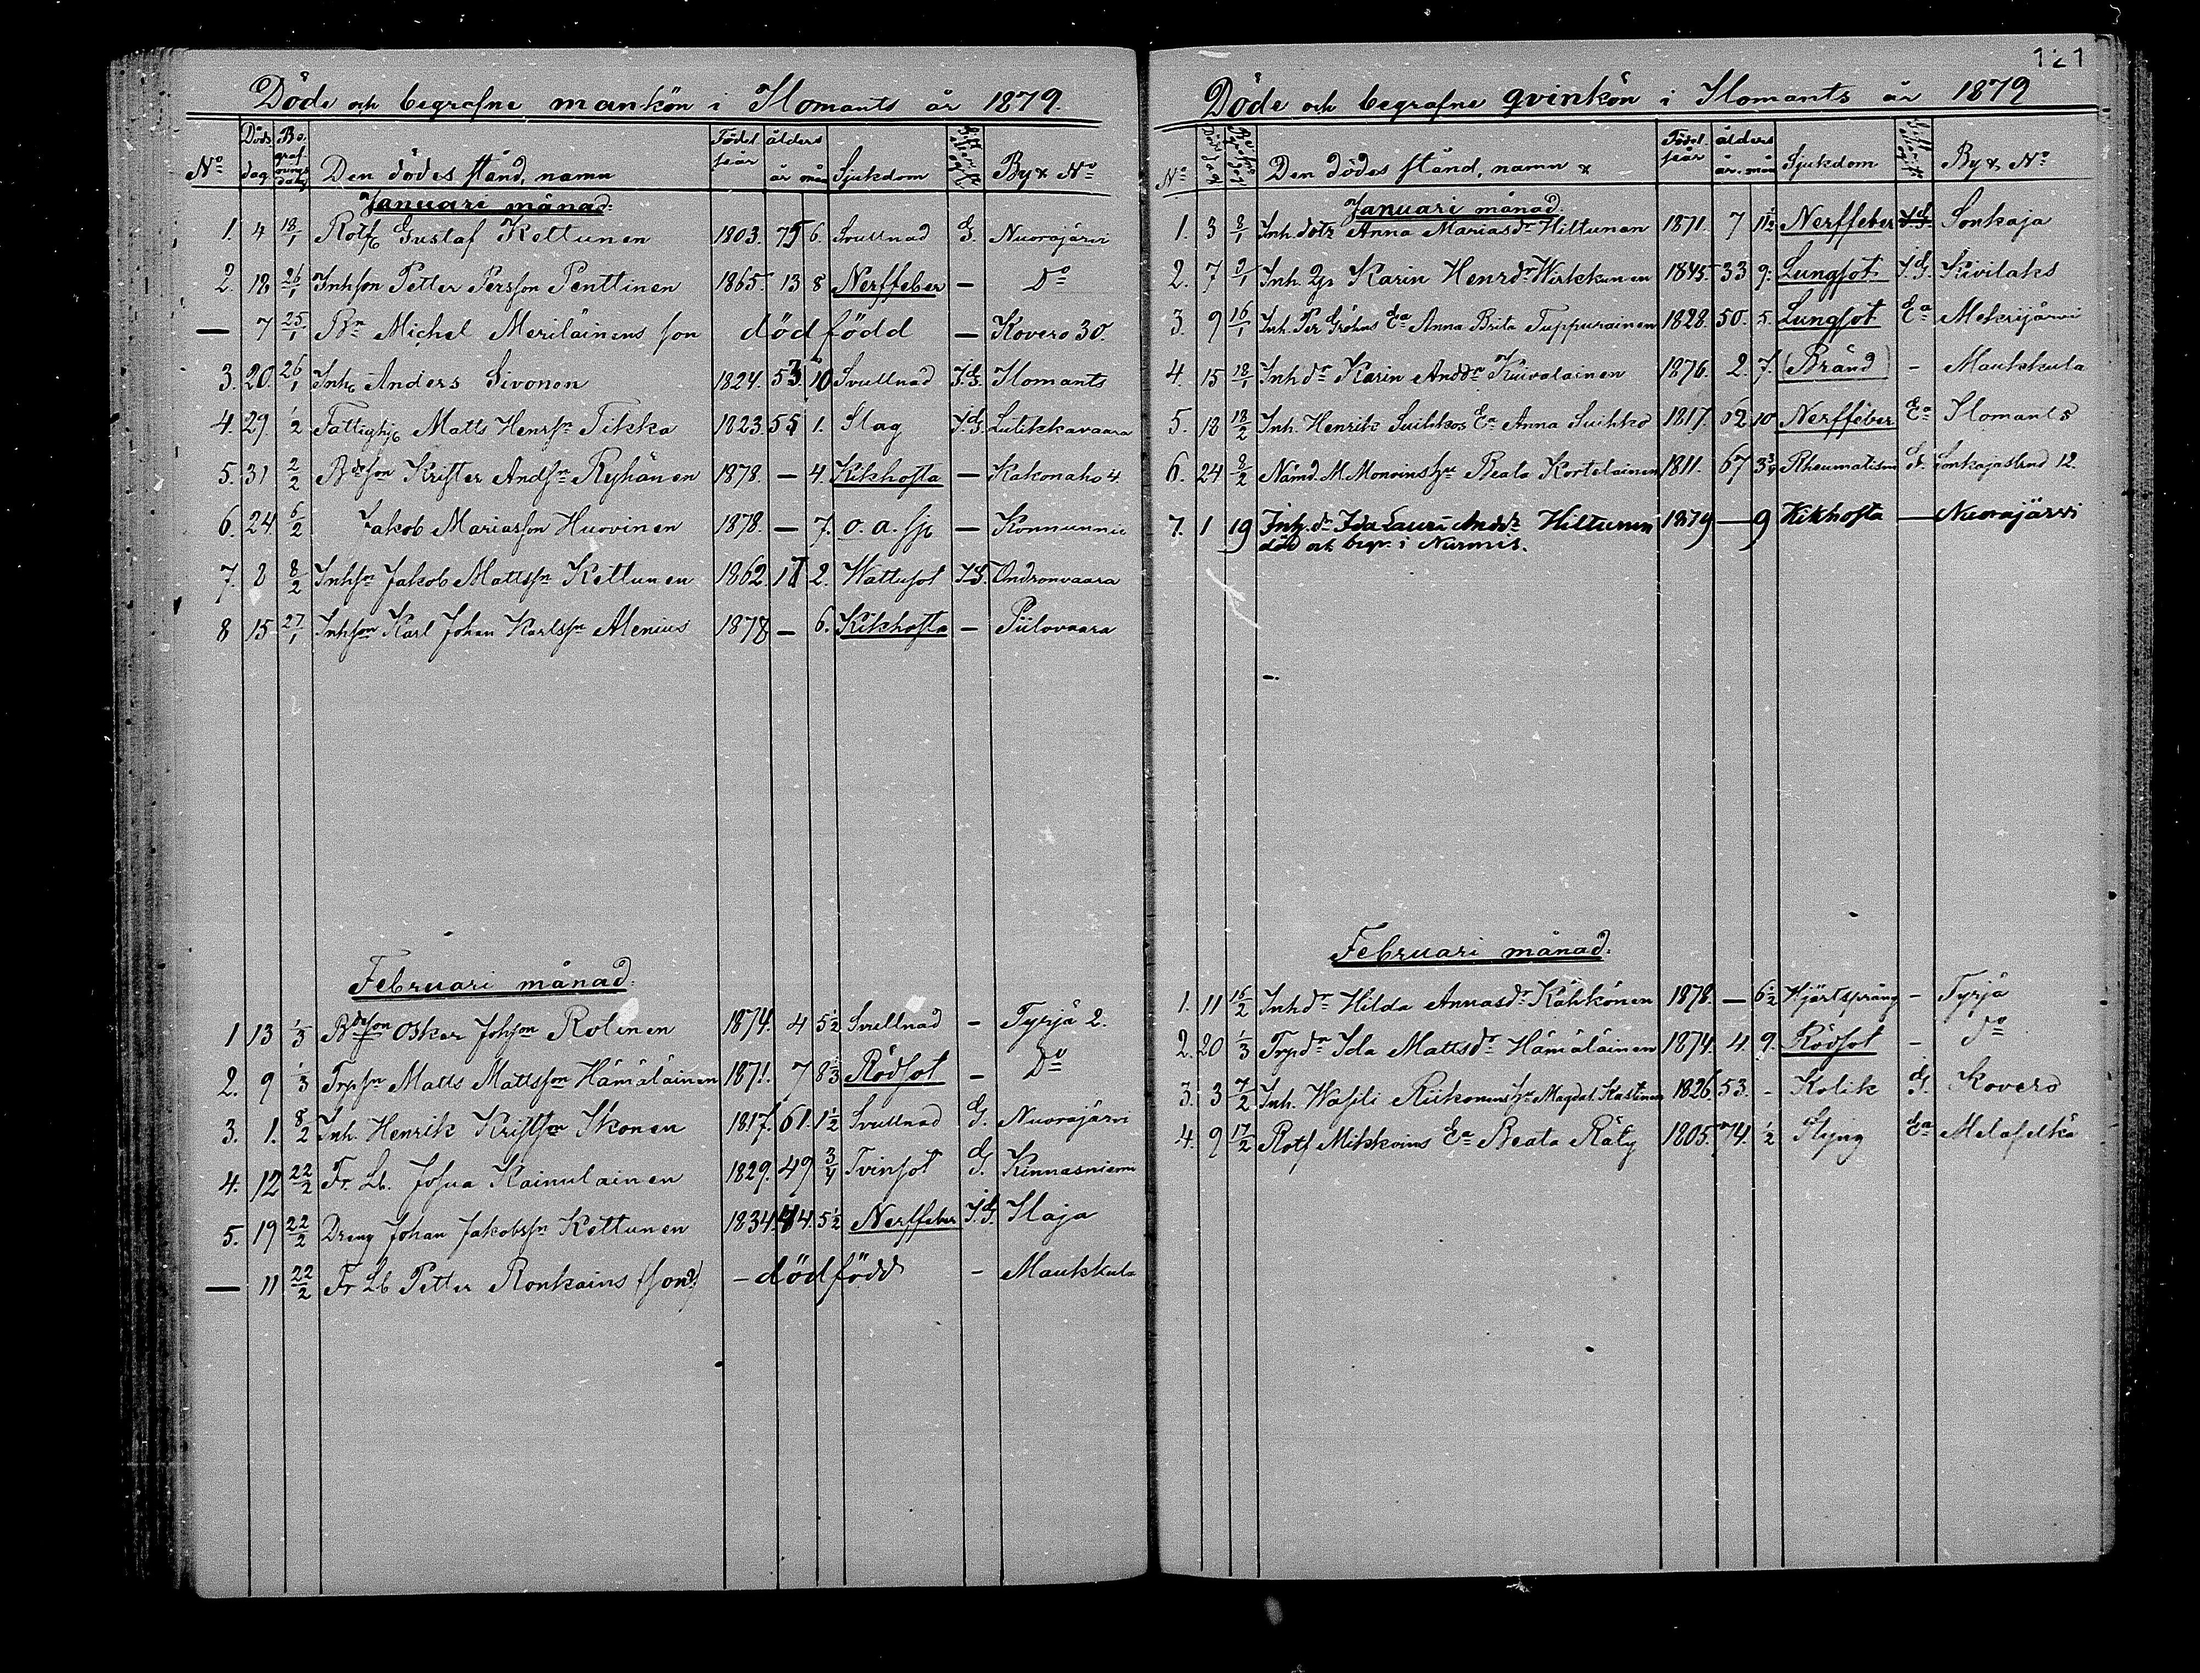 121
Döde och begrafne mankön i Ilomants år 1879.
No Döds dag Begrafnings dag Den dödes stånd, namn Födelseår ålders år mån Sjukdom By & No
Januari månad.
1. 4 18/1 Rotf Gustaf Kettunen 1803. 75 6. Svullnad G. Nuorajärvi
2. 18 26/1 Inhson Petter Persson Penttinen 1865. 13 8 Nerffeber — Do
— 7 25/1 Bn Michel Meriläinens son död född — Kovero 30.
3. 20. 26/1 Inh Anders Sivonen 1824. 53. 10 Svullnad Ilomants
4. 29. 1/2 Fattighj Matts Henrsn Tikka 1823. 55 1. Slag Lutikkavaara
5. 31 2/2 Bdeson Krister Andsn Ryhänen 1878. — 4. Kikhosta — Kakonaho 4
6. 24 6/2 Jakob Mariasson Huovinen 1878. — 7. o. a. sj — Konnunnie
7. 2 8/2 Inhsn Jakob Mattssn Kettunen 1862 17 2. Wattusot Ondronvaara
8 15 27/1 Inhson Karl Johan Karlssn Alenius 1878 — 6. Kikhosta — Piilovaara
Februari månad.
1 13 1/3 Bdeson Oskar Johson Rotinen 1874. 4 5 1/2 Svullnad - Tyrjä 2.
2. 9 1/3 Trpsn Matts Mattsson Hämäläinen 1871. 7 8 1/3 Rödsot - Do
3. 1. 8/2 Inh. Henrik Kristson Ikonen 1817. 61. 1 1/2 Svullnad G. Nuorajärvi
4. 12 22/2 Fr. Lb. Josua Kainulainen 1829. 49 3/4 Tvinsot G. Kinnasniemi
5. 19 22/2 Dreng Johan Jakobssn Kettunen 1834. 44. 5 1/2 Nerffeber Ilaja
— 11 22/2 Fr Lb Petter Ronkains (son) - död född - Maukkula
Döde och begrafne qvinkön i Ilomants år 1879
No Döds dag Begrafn dag Den dödes stånd, namn & Födelseår ålders år. mån Sjukdom By & No
Januari månad.
1. 3 8/1 Inh. dotr Anna Mariasdr Hiltunen 1871. 7 11 1/2 Nerffeber Sonkaja
2. 7 9/1 Inh. Karin Henrdr Wirkkunen 1845 33 9. Lungsot Kivilaks
3. 9 16/1 Inh. Per Gröhns Ea Anna Brita Tuppurainen 1828. 50. 5. Lungsot Ea Mekrijärvi
4. 15 18/1 Inh dr Karin Anddr Kuivalainen 1876. 2. 7. (Bränd) - Maukkula
5. 18 18/2 Inh. Henrik Suihkos Ea Anna Suihko 1817. 62 10 Nerffeber Ea Ilomants
6. 24 8/2 Nämd. M. Monoins Beata Kortelainen 1811. 67 3 3/4 Rheumatism G. Sonkajastrnd 12.
7. 1 19 Inh. dr Ida Laura Anddr Hiltunen 1879 — 9 Kikhosta — Nuorajärvi
död och begr. i Nurmis.
Februari månad.
1. 11 16/2 Inhdr Hilda Annasdr Kähkönen 1878. — 6 1/2 Hjärtspräng - Tyrjä
2. 20 1/3 Trpdr Ida Mattsdr Hämäläinen 1874. 4. 9. Rödsot - Do
3. 3 7/2 Inh. Wasili Riikonens Magdal. Kastinen 1826 53. - Kolik G. Kovero
4. 9 17/2 Rotf Mikkoins Ea Beata Räty 1805. 74. 1/2 Styng Ea Melaselkä